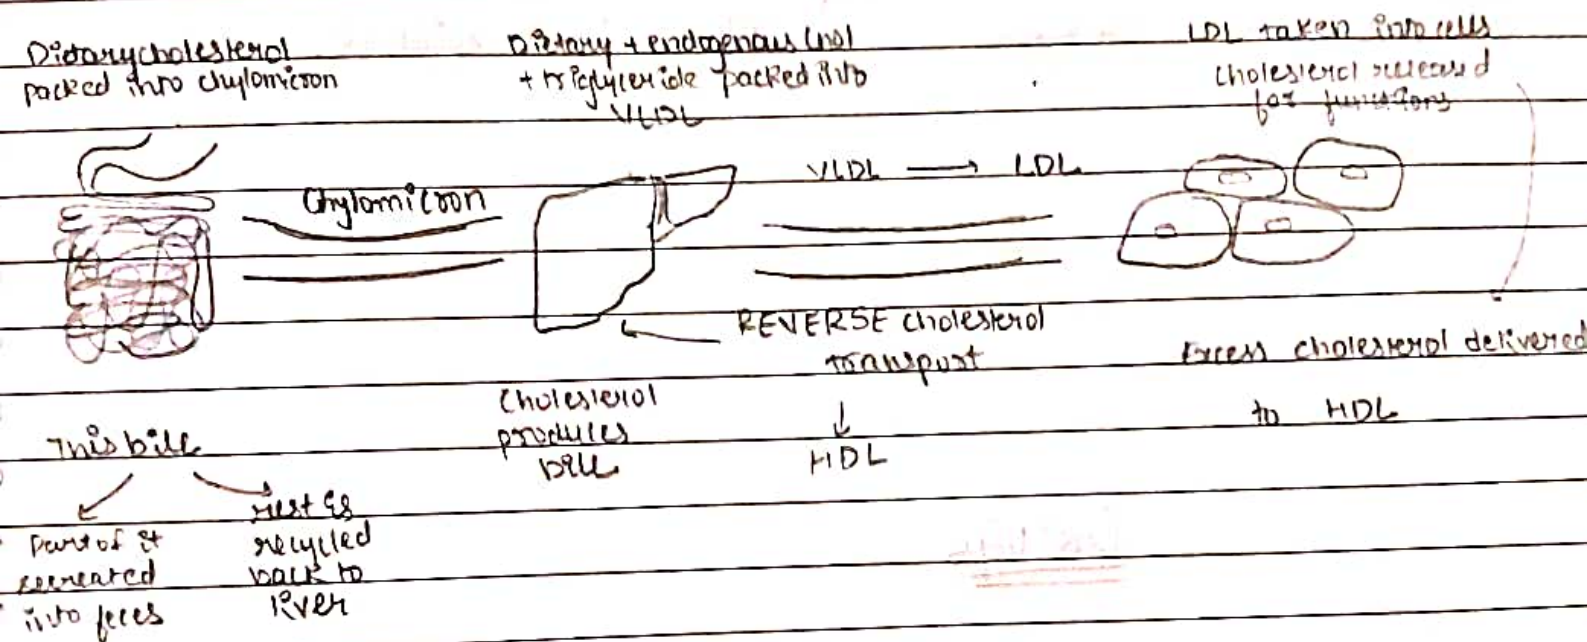 Dietary cholesterol
packed into chylomicron
Dietary + endogenous Chol
+ triglyceride packed into
VLDL
LDL taken into cells
cholesterol released
for functions
Chylomicron
VLDL → LDL
REVERSE cholesterol
transport
↓
HDL
Excess cholesterol delivered
to HDL
Cholesterol
produces
bile
This bile
Part of it
into feces
rest is
recycled
back to
liver